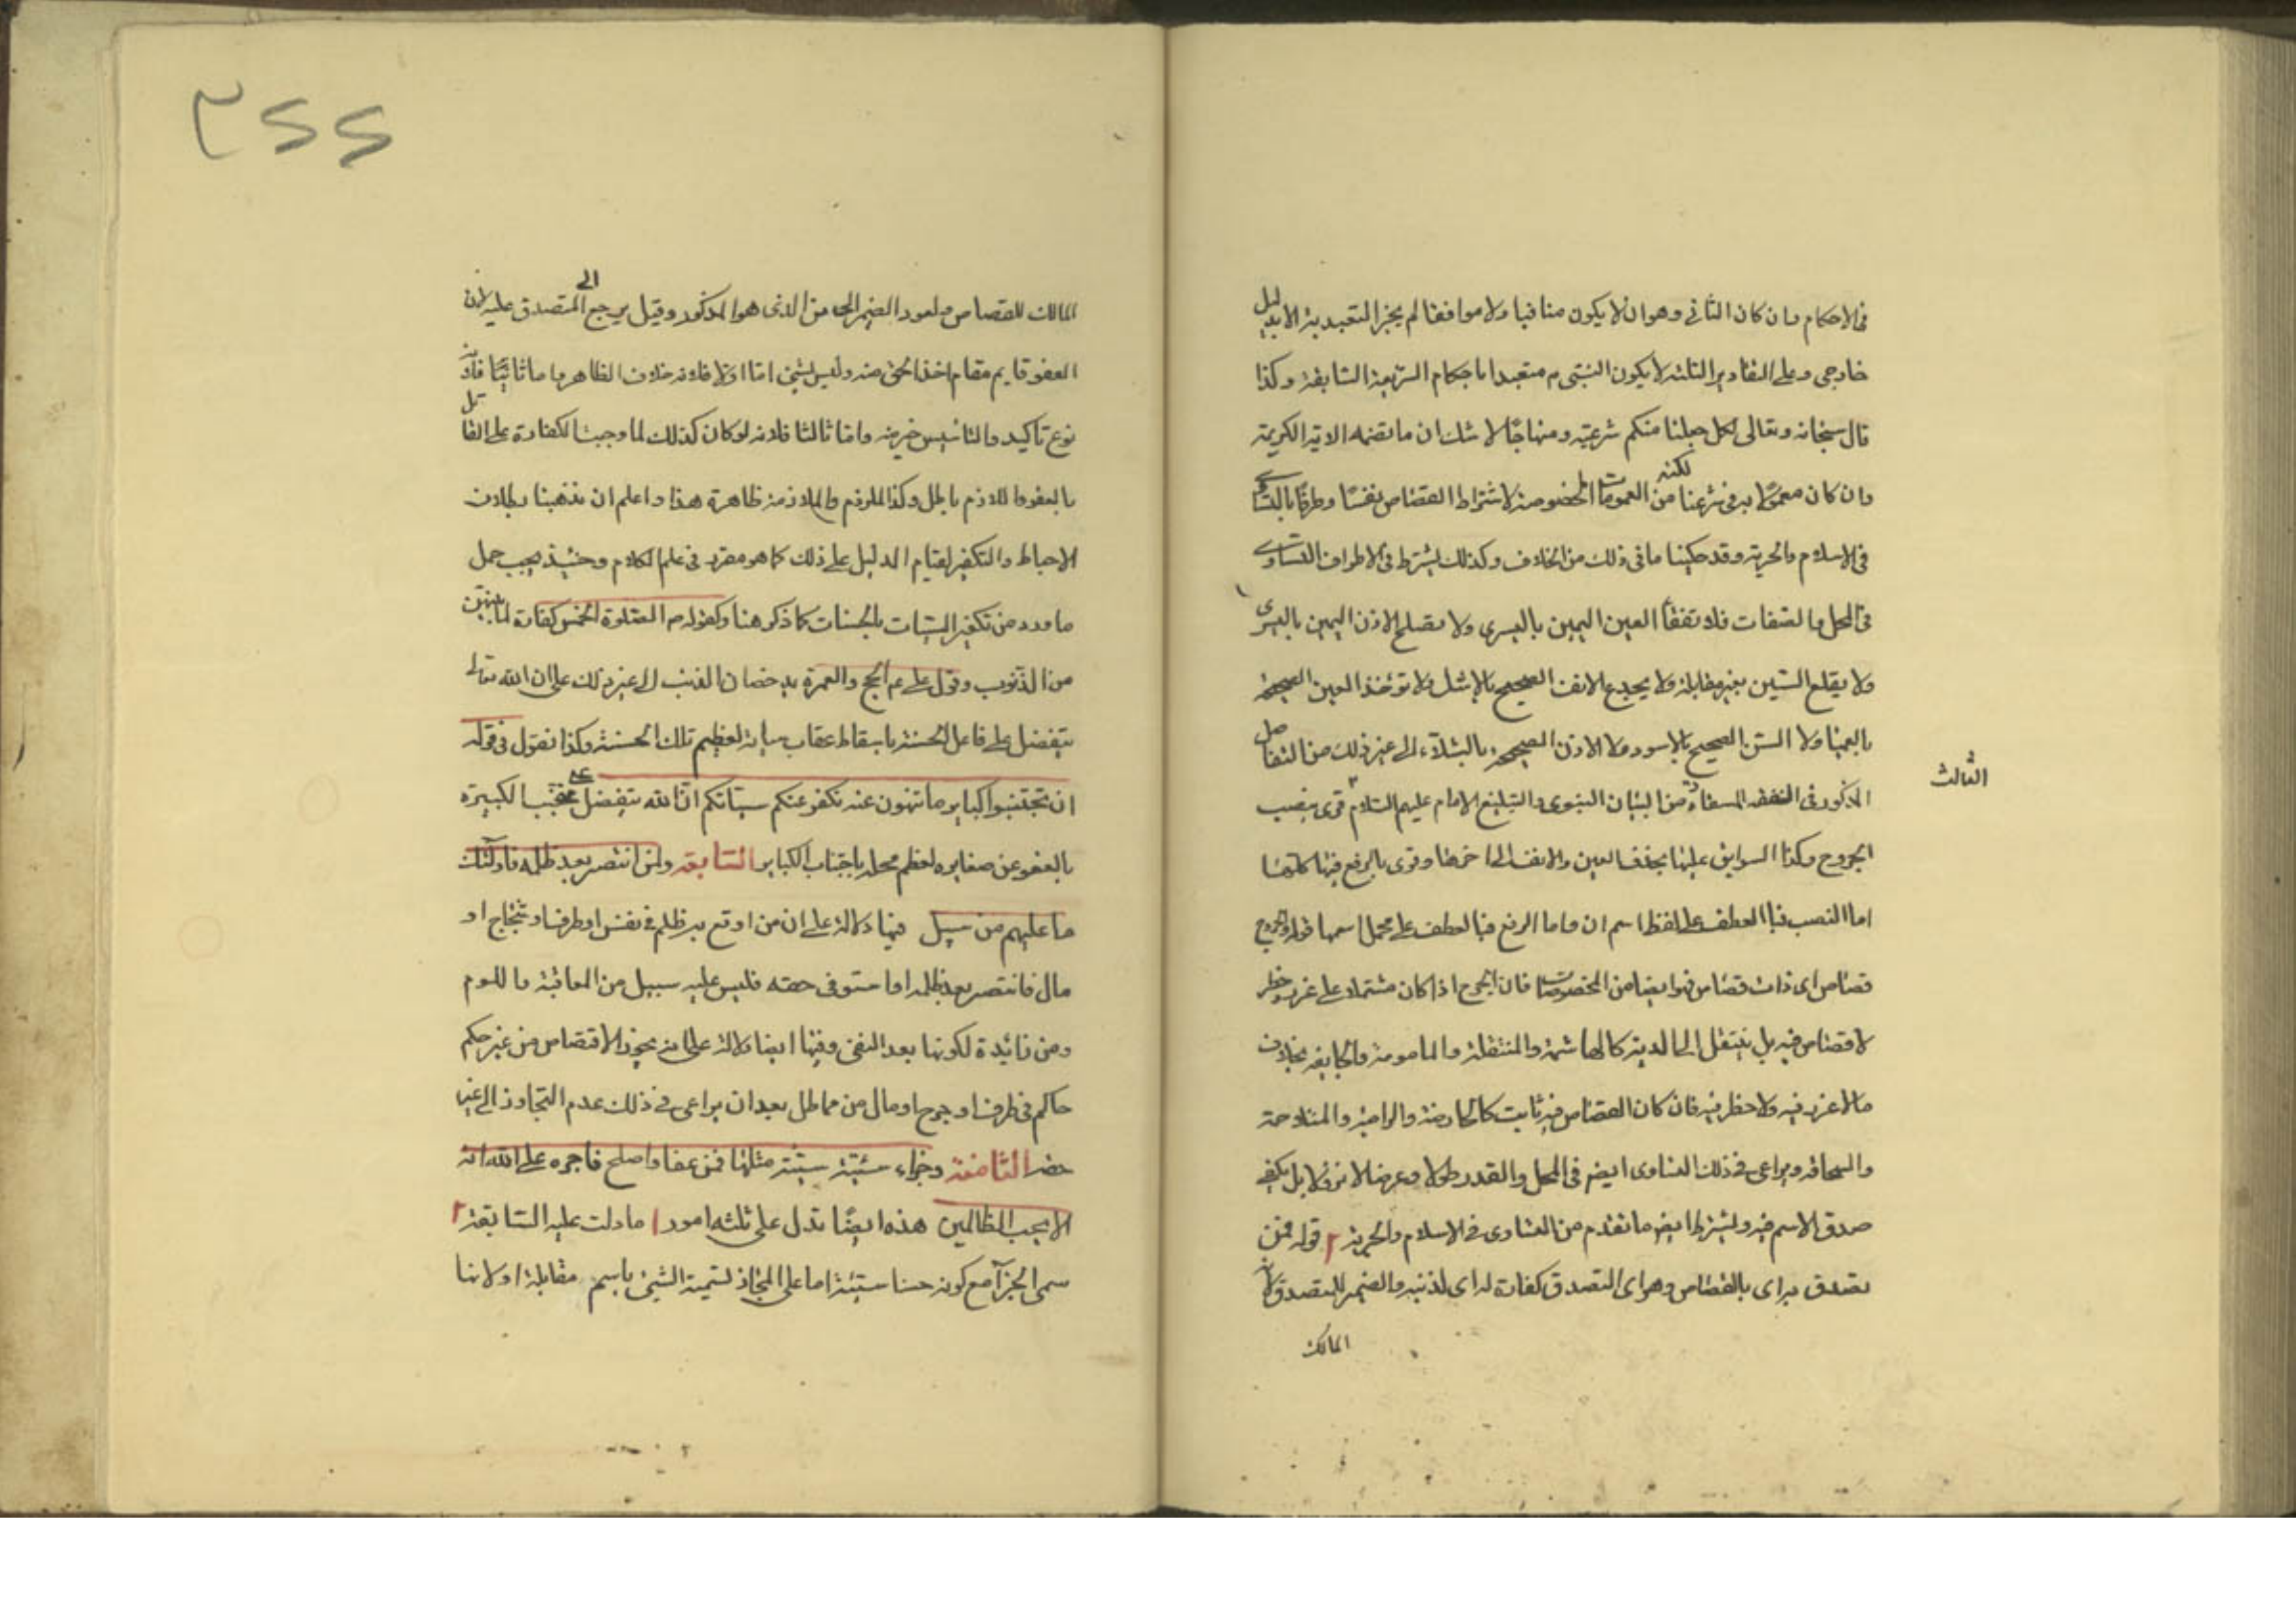 في الاحكام وان كان الثاني وهو ان لا يكون منافيا ولا موافقا لم يجز التعبد به الا بدليل
خارجي وعلى التقادير الثلثة لا يكون النبي م متعبدا باحكام الشريعة السابقة وكذا
قال سبحانه وتعالى لكل جعلنا منكم شرعة ومنهاجا لا شك ان ما تضمنه الاية الكريمة
وان كان معمولا به في شرعنا لكنه من العمومات المخصوصة لاشتراط القصاص نفسا وطرفا بالتساوي
في الاسلام والحرية وقد حكينا ما في ذلك من الخلاف وكذلك يشترط في الاطراف التساوي
في المحل والصفات فلا تفقأ العين اليمين باليسرى ولا تصلم الاذن اليمين باليسرى
ولا يقلع السنين بغير مقابلة ولا يجدع الانف الصحيح بالاشل ولا تؤخذ العين الصحيحة
بالعميا ولا السن الصحيح بالاسود ولا الاذن الصحيحة بالشلآء الى غير ذلك من التفاصل
الثالث
المذكور في الفقه المستفادة من البيان النبوي والتبليغ الامام عليهم السلام ٣ قرى بنصب
الجروح وكذا السوابق عليها بحذف العين والانف الى اخرها وقرى بالرفع فيها كلها
اما النصب فبالعطف على لفظ اسم ان واما الرفع فبالعطف على محل اسمها قوله والجروح
قصاص اى ذات قصاص فهو ايضا من المخصوصات فان الجرح اذا كان مشتملا على غرر وخطر
لا قصاص فيه بل ينتقل الى الدية كالهاشمة والمنقلة والمامومة والجايفة بخلاف
ما لا غرر فيه ولا خطر فيه فان كان القصاص فيه ثابت كالحارصة والدامية والمتلاحمة
والسمحاق ويراعى في ذلك التساوى ايضم في المحل والقدر طولا وعرضا لا نزولا بل يكفي
صدق الاسم فيه ويشترط ايضم ما تقدم من التساوى في الاسلام والحرية ٤ قوله فمن
تصدق به اى بالقصاص فهو اى التصدق كفارة له اى لذنبه والضمير للمتصدق لانه
المالك
٣٤٤
المالك للقصاص ولعود الضمير الى من الذى هو المذكور وقيل يرجع الى المتصدق عليه لان
العفو قايم مقام اخذ الحق منه وليس بشئ اما اولا فلانه خلاف الظاهر واما ثانيا فلانه
نوع تاكيد والتاسيس خير منه واما ثالثا فلانه لو كان كذلك لما وجبت الكفارة على القاتل
بالعفو واللازم باطل وكذا الملزوم والملازمة ظاهرة هذا واعلم ان مذهبنا بطلان
الاحباط والتكفير لقيام الدليل على ذلك كما هو مقرر في علم الكلام وحينئذ يجب حمل
ما ورد من تكفير السيات بالحسنات كما ذكر هنا وكقوله م الصلوة الخمس كفارة لما بينهن
من الذنوب وقول على عم الحج والعمرة يدحضان الذنب الى غير ذلك على ان الله تعالى
يتفضل على فاعل الحسنة باسقاط عقاب سياته لعظيم تلك الحسنة وكذا نقول في قوله
ان تجتنبوا كباير ما تنهون عنه نكفر عنكم سياتكم ان الله يتفضل على مجتنب الكبيرة
بالعفو عن صغايره لعظم محله باجتناب الكباير السابعة ولمن انتصر بعد ظلمه فاولئك
ما عليهم من سبيل فيها دلالة على ان من اوقع به ظلم في نفس او طرف او شجاج او
مال فانتصر بعد ظلمه او استوفى حقه فليس عليه سبيل من المعاقبة واللوم
ومن زائدة لكونها بعد النفي وفيها ايضا دلالة على انه يجوز الاقتصاص من غير حكم
حاكم في طرف او جرح او مال من مماطل بعد ان يراعى في ذلك عدم التجاوز الى غير
حقه الثامنة وجزاء سيئة سيئة مثلها فمن عفا واصلح فاجره على الله انه
لا يحب الظالمين هذه ايضا تدل على ثلثة امور ا ما دلت عليه السابقة ٢
سمى الجزآ مع كونه حسنا سيئة اما على المجاز لتسمية الشئ باسم مقابلة او لانها